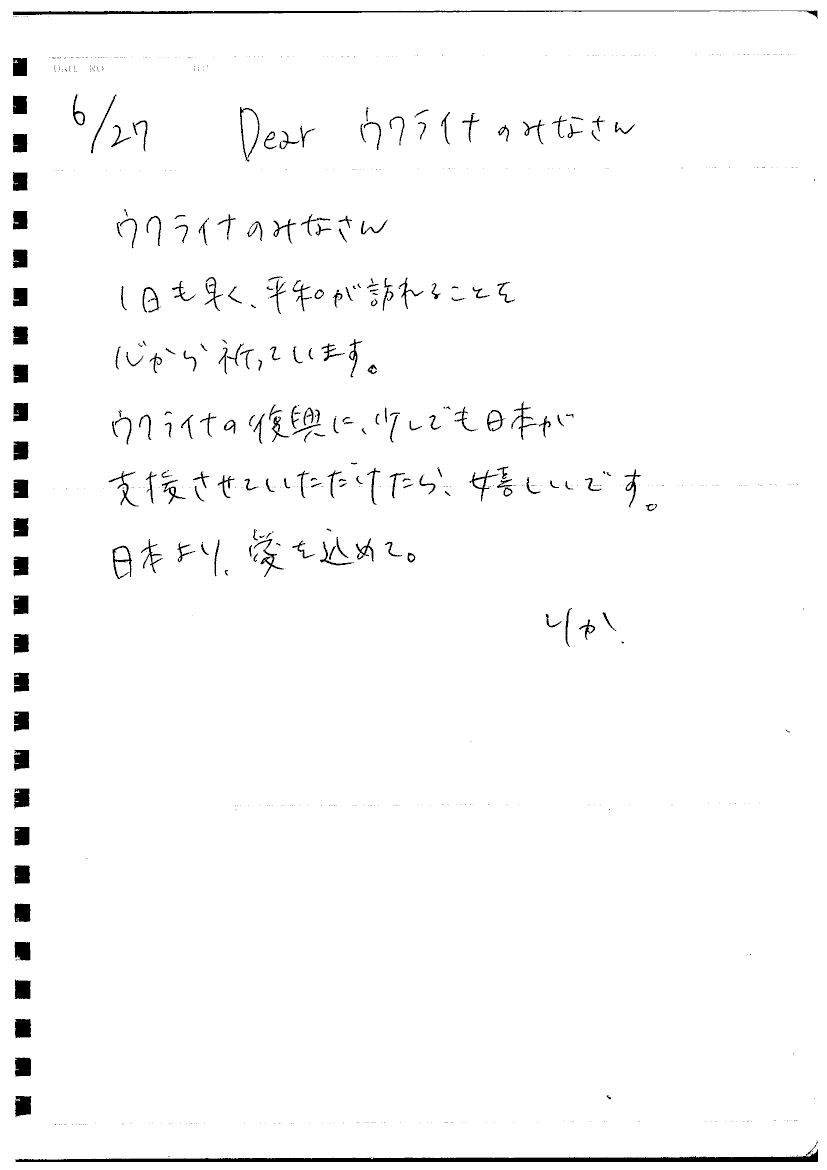 DATE NO
6/27 Dear ウクライナのみなさん
ウクライナのみなさん
1日も早く、平和が訪れることを
心から祈っています。
ウクライナの復興に、少しでも日本が
支援させていただけたら、嬉しいです。
日本より、愛を込めて。
りか.